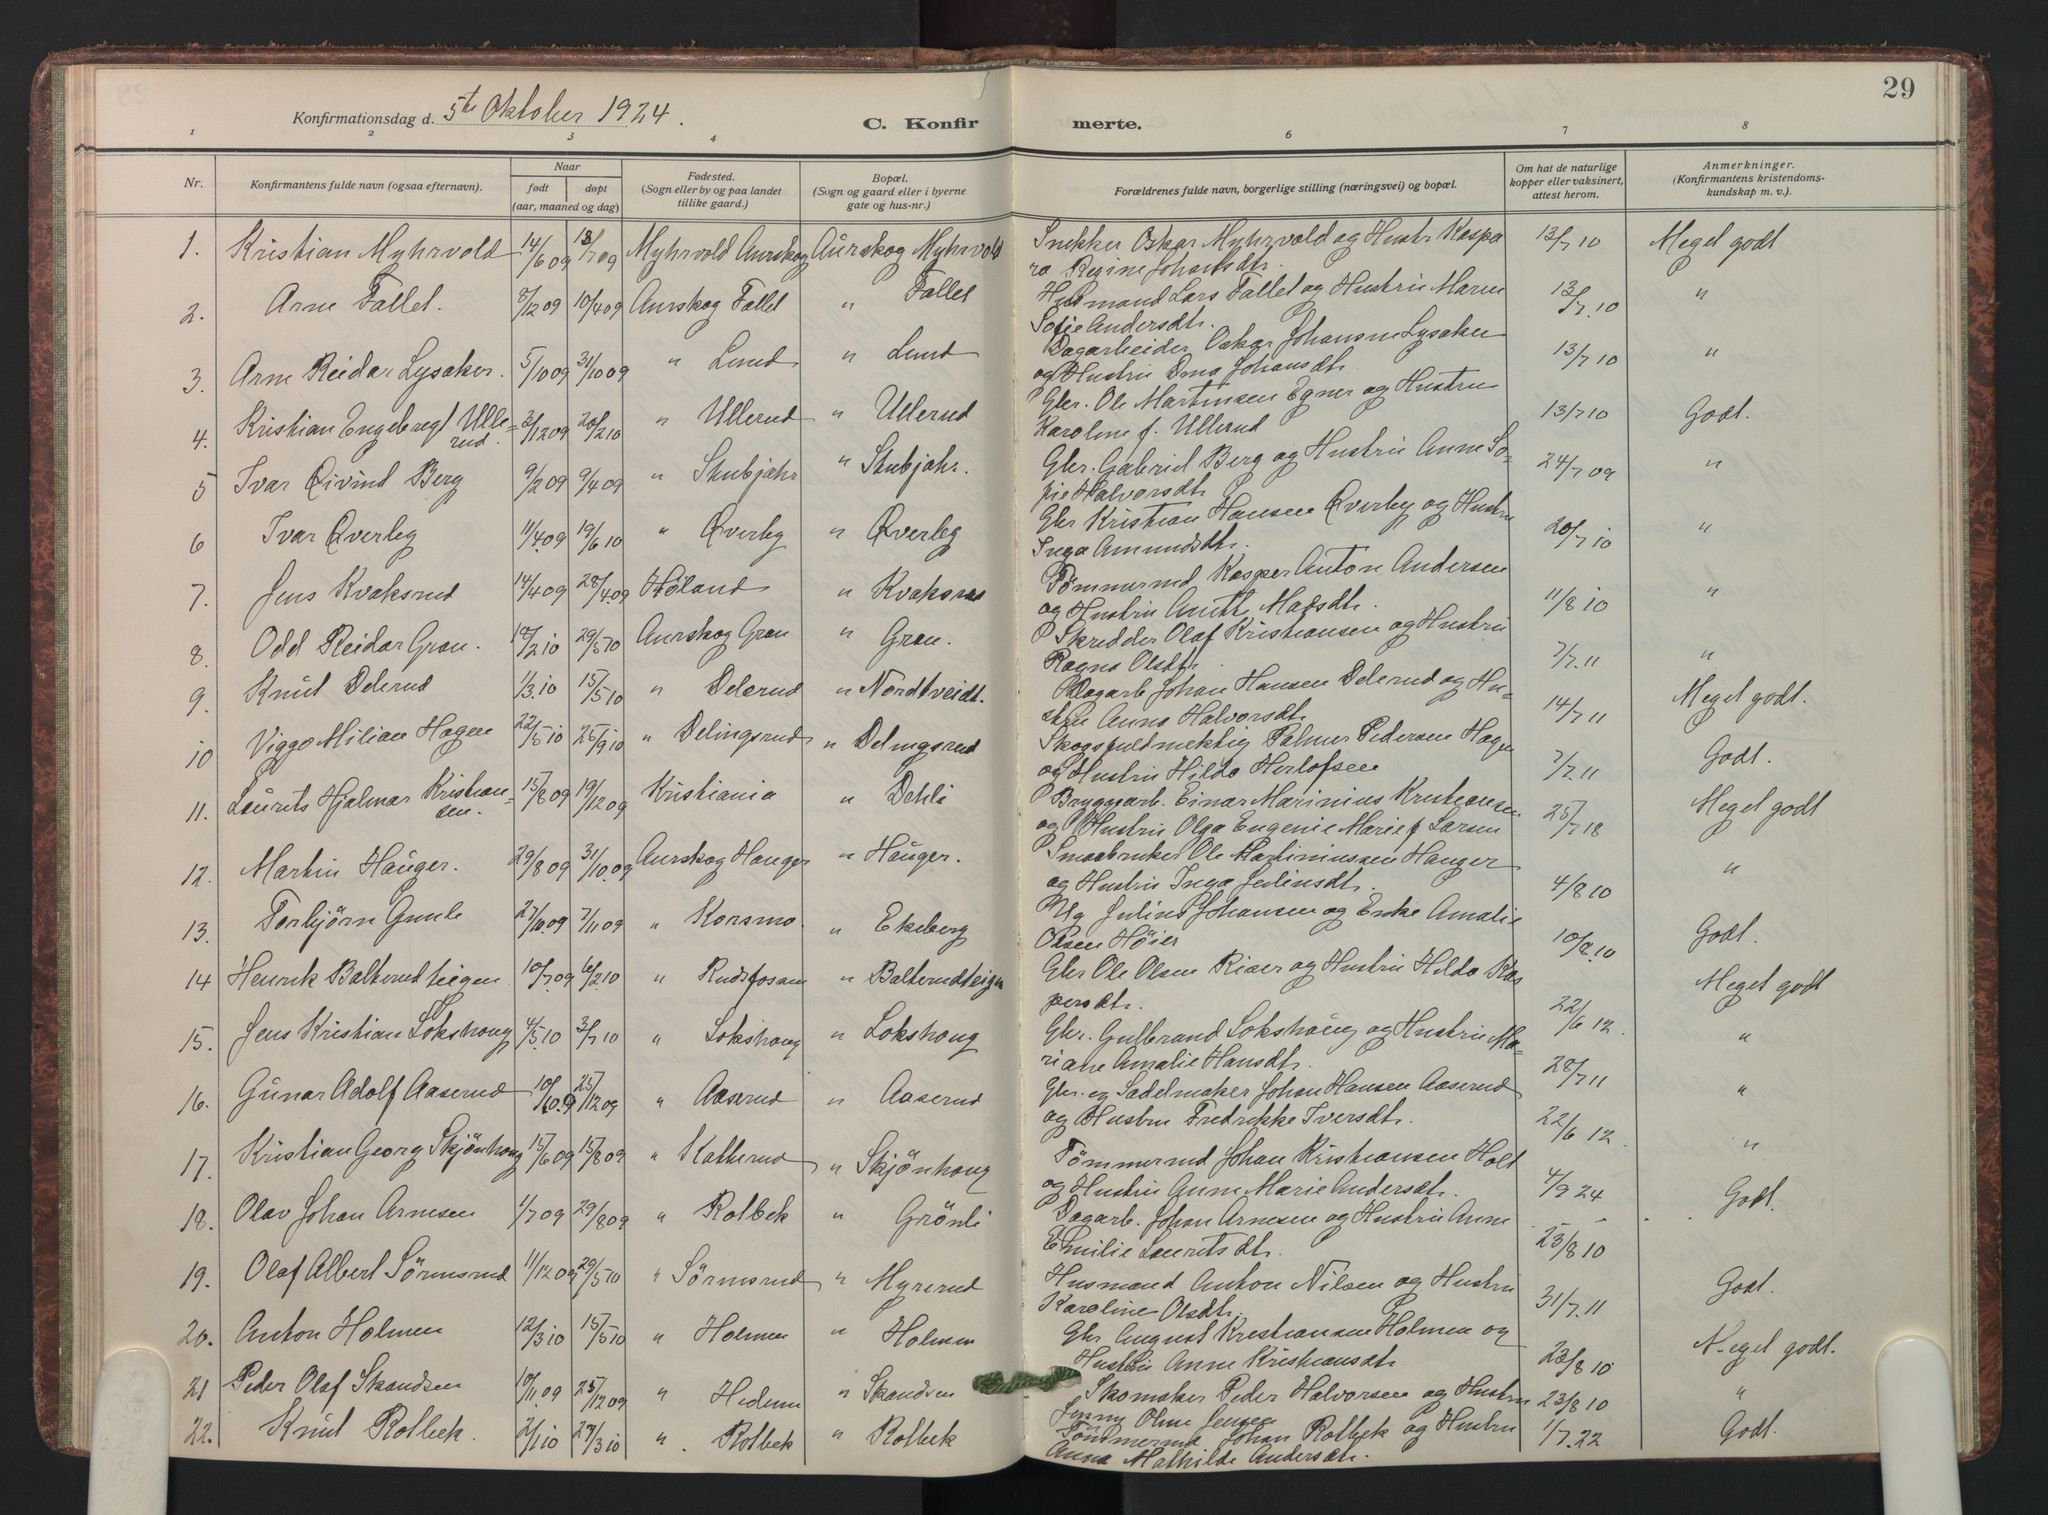 29
Konfirmationsdag d. 5te Oktober 1924.
C. Konfir merte.
1 2 3 4 6 7 8
Nr.
Konfirmantens fulde navn (ogsaa efternavn).
Naar
født døpt
(aar, maaned og dag)
Fødested.
(Sogn eller by og paa landet
tillike gaard.)
Bopæl.
(Sogn og gaard eller i byerne
gate og hus-nr.)
Forældrenes fulde navn, borgerlige stilling (næringsvei) og bopæl.
Om hat de naturlige
kopper eller vaksinert,
attest herom.
Anmerkninger.
(Konfirmantens kristendoms-
kundskap m. v.).
1. Kristian Myhrvold 14/6 09 18/7 09 Myhrvold Aurskog Aurskog Myhrvold Snekker Oskar Myhrvold og Hustr Kaspa 13/7 10 Meget godt
ra Regine Johansdtr.
2. Arne Fallet. 8/12 09 10/4 09 Aurskog Fallet " Fallet Husmand Lars Fallet og Hustru Maren 13/7.10 "
Sofie Andersdtr.
3. Arne Reidar Lysaker. 5/10 09 31/10 09 " Lund " Lund Dagarbeider Oskar Johansen Lysaker 13/7 10 "
og Hustru Johansdtr.
4. Kristian Engebregt Ulle= 3/12 09 20/2 10 " Ullerud " Ullerud Gbr. Ole Martinsen Egner og Hustru 13/7 10 Godt.
rud. Karoline f. Ullerud
5 Ivar Øivind Berg 9/2 09 9/4 09 " Skubjahr " Skubjahr. Gbr. Gabriel Berg og Hustru Anne So- 24/7 09 "
fie Halvorsdtr
6 Ivar Øverby 11/4.09 19/6 10 " Øverby " Øverby Gbr Kristian Hansen Øverby og Hustru 20/7 10 "
Inga Amundsdtr.
7. Jens Kvaksrud 14/4 09 28/4.09 Høland " Kvaksrud Tømmermd Kasper Anton Andersen 11/8 10 "
og Hustru Madsdtr.
8. Odd Reidar Gran. 10/2 10 29/5 10 Aurskog Gran " Gran. Skredder Olaf Kristiansen og Hustru 7/7.11 "
Ragna Olsdtr
9. Knut Delerud 1/3.10 15/5 10 " Delerud " Nordtveidt. Dagarb. Johan Hansen Delerud og Hu- 14/7 11 Meget godt.
stru Anna Halvorsdtr
10 Viggo Milian Hagen 22/5 10 25/9 10 " Delingsrud " Delingsrud Skogsfuldmektig Palmer Pedersen Hagen 7/7.11 Godt.
og Hustru Hilda Herlofsen
11. Laurits Hjalmar Kristian= 15/8 09 19/12 09 Kristiania " Dehli Bryggarb. Einar Marinius Kristiansen 25/7 18 Meget godt
sen. og Hustru Olga Eugenie Marie f Larsen
12. Martin Hauger. 29/8 09 31/10.09 Aurskog Hauger " Hauger. Smaabruker Ole Martiniussen Hauger 4/8 10 "
og Hustru Inga Julinsdtr.
13. Torbjörn Gunle 27/10.09 7/11 09 " Korsmo. " Ekeberg Ug Julius Johansen og Enke Amalie 10/9.10 Godt.
Olsen Höier
14 Henrik Balterudteigen 10/7.09 6/2.10 " Rudsfosam " Balterudteigen Gbr Ole Olsen Riser og Hustru Hilda Kas 22/6 12 Meget godt
persdtr.
15. Jens Kristian Lokshoug 4/5.10 3/7 10 " Lokshoug " Lokshoug Gbr. Gulbrand Lokshoug og Hustru Ma- 28/7 11 "
riane Amalie Hansdtr.
16. Gunar Adolf Aaserud 10/10.9 25/12 09 " Aaserud " Aaserud Gbr. og Sadelmaker Johan Hansen Aaserud 22/6 12. "
og Hustru Fredrikke Iversdtr.
17. Kristian Georg Skjönhoug 15/6 09 15/8 09 " Katterud " Skjönhoug Tömmermd Johan Kristiansen Holt 4/9 24 "
og Hustru Anne Marie Andersdtr.
18. Olav Johan Arnesen 1/7 09 29/8 09 " Rolbek " Grönli Dagarb. Johan Arnesen og Hustru Anne 23/8 10 Godt.
Emilie Lauritsdtr.
19. Olaf Albert Sörmsrud 11/12 09 29/5 10 " Sörmsrud " Myrerud Husmand Anton Nilsen og Hustru 31/7.11 Godt.
Karoline Olsdtr.
20. Anton Holmen 12/3 10 15/5 10 " Holmen " Holmen Gbr August Kristiansen Holmen og 23/8 10 Meget godt.
Hustru Anne Kristiansdtr
21 Peder Olaf Skandsen 10/11.09 25/12 09 " " Skandsen Skomaker Peder Halvorsen og Hustru 23/8 10 "
Jenny Oline Jensen
22. Knut Rolbek. 2/1.10 27/3 10 " Rolbek " Rolbek Tömmermd. Johan Rolbek og Hustru 1/7.22 Godt.
Anna Mathilde Andersdtr.